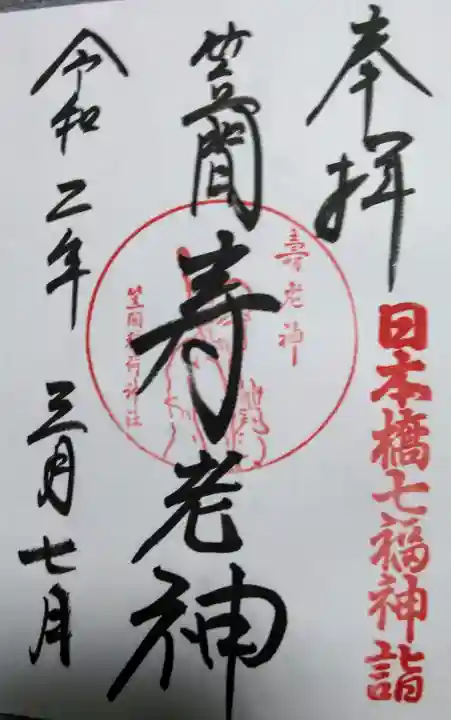 奉拝
日本橋七福神詣
笠間寿老神
壽老神
笠間稲荷神社
令和二年 三月七月